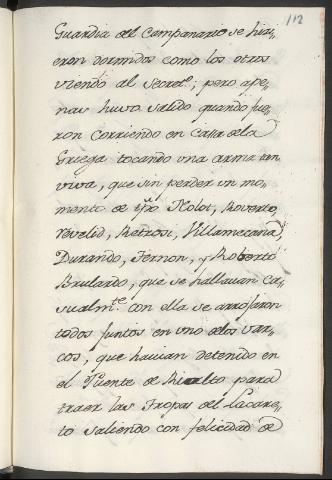 112
Guardia del Campanario se hizi-
eron dormidos como los otros
viendo al Secret.º; pero ape-
nas huvo salido quando fue-
ron corriendo en Casa de la
Griega tocando una arma tan
viva, que sin perder un mo-
mento de tpõ Nolot, Roverto,
Revelid, Retrosi, Villamecana,
Durando, Ternon, y Roberto
Brulardo, que se hallauan ca-
sualm.te con ella se arrojaron
todos juntos en uno de los var-
cos, que hauian detenido en
el Puente de Rialto para
traer las Tropas del Lacare-
to saliendo con felicidad de